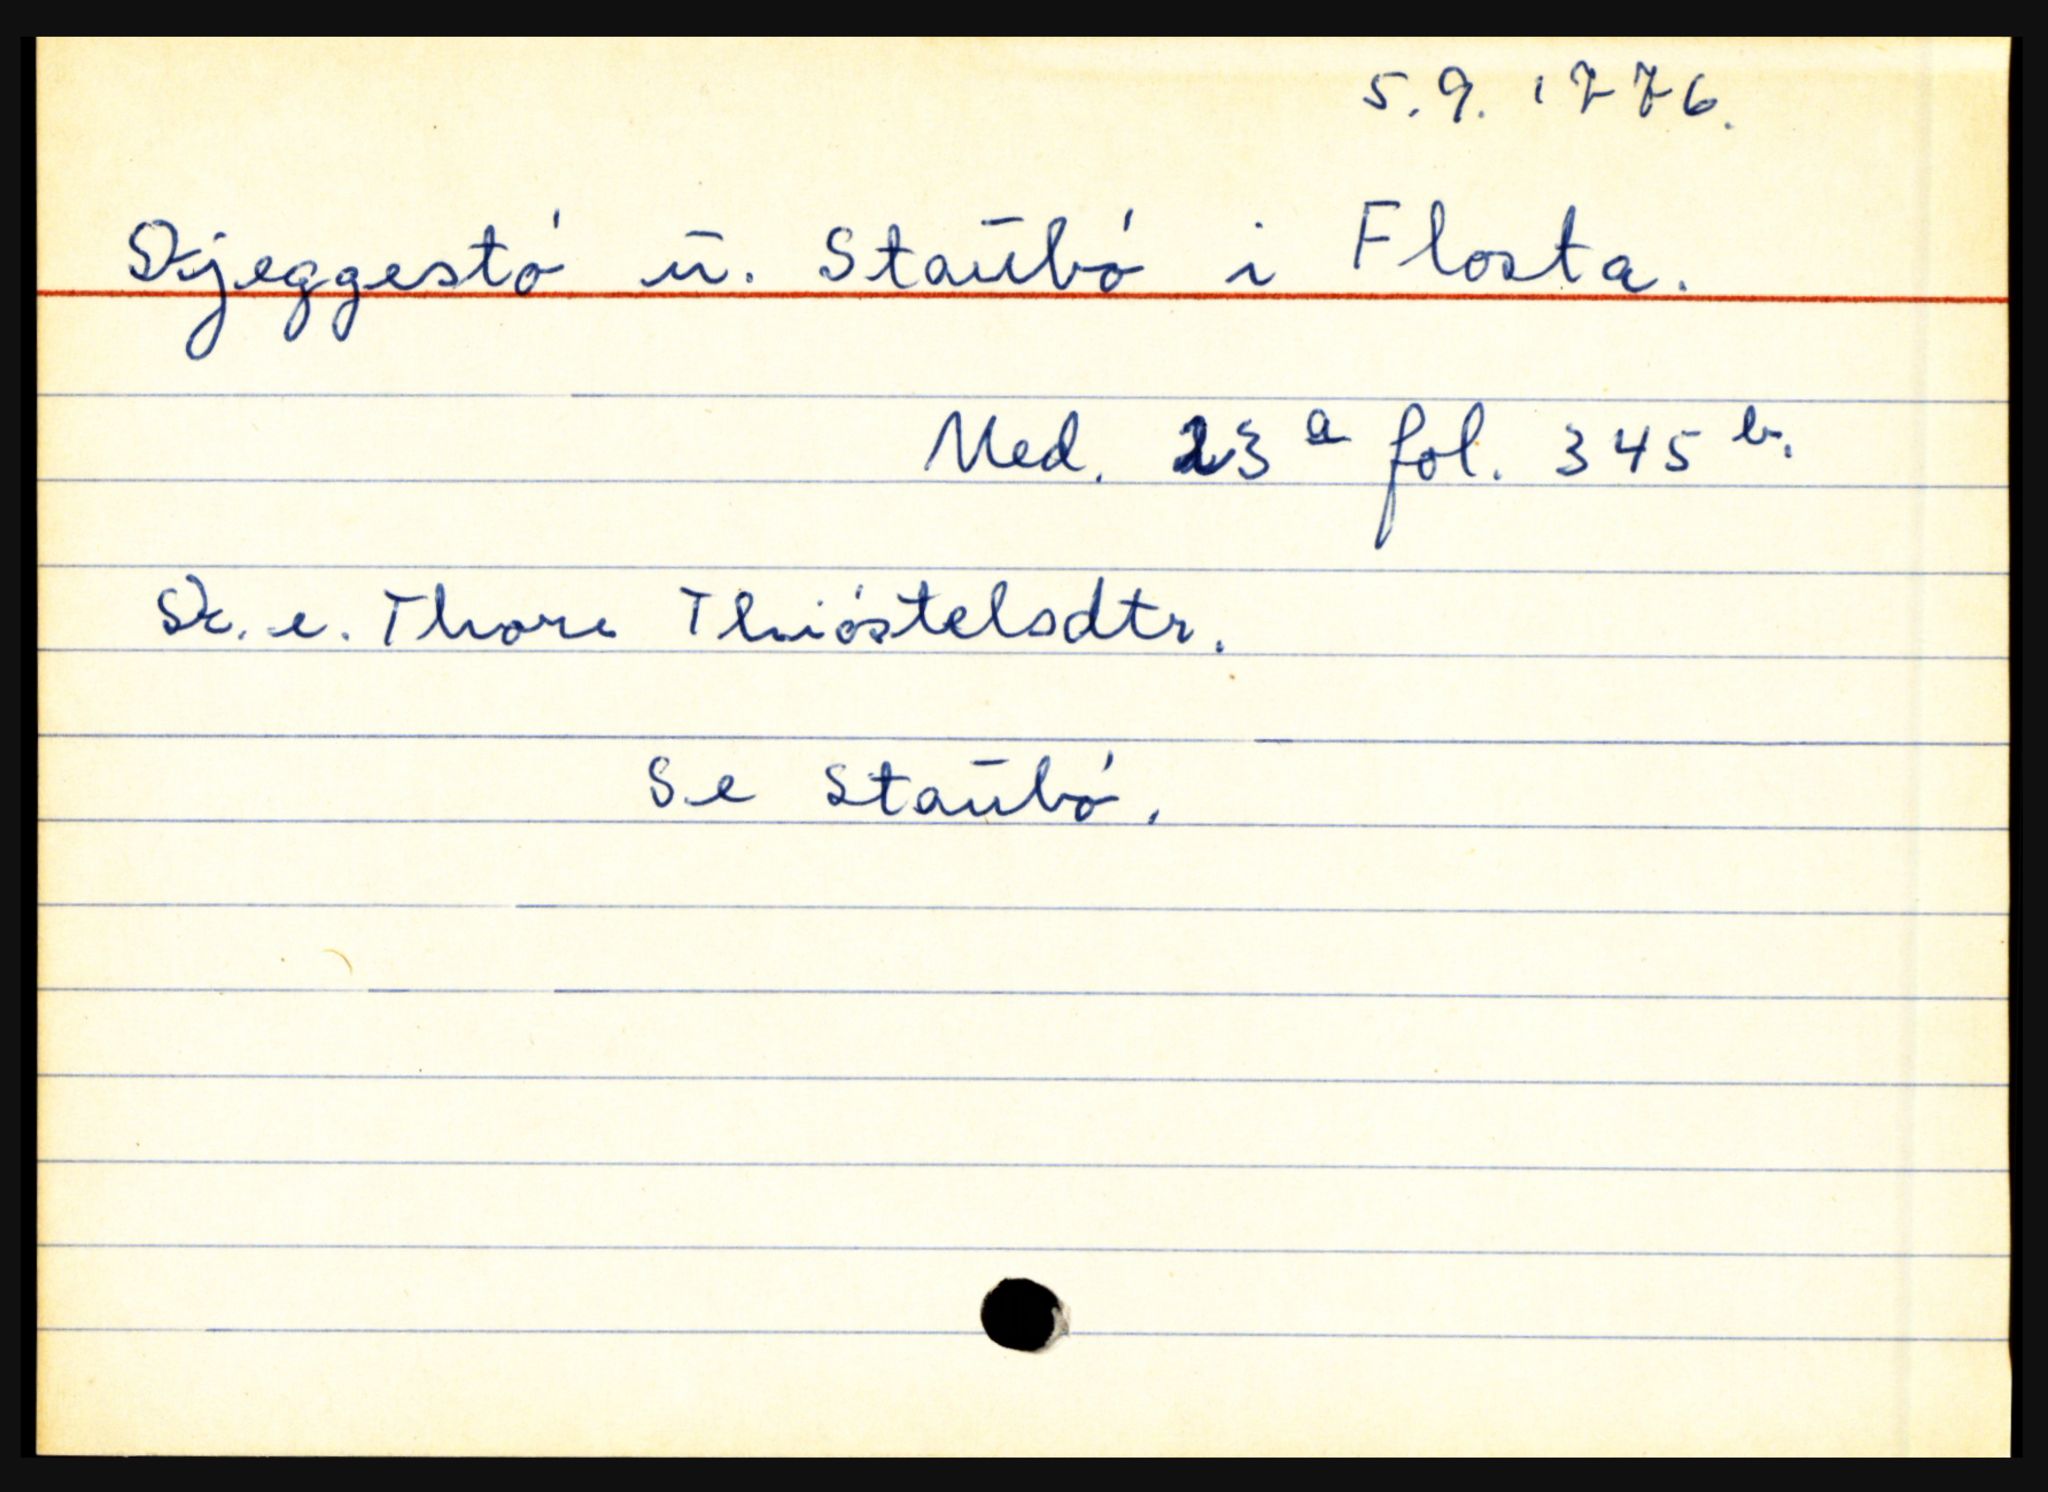 5.9.1776.
Skjeggestø u. Staubø i Flosta.
Ned. 23 a fol. 345 b.
Sk. e. Thore Thiøstelsdtr.
Se Staubø.